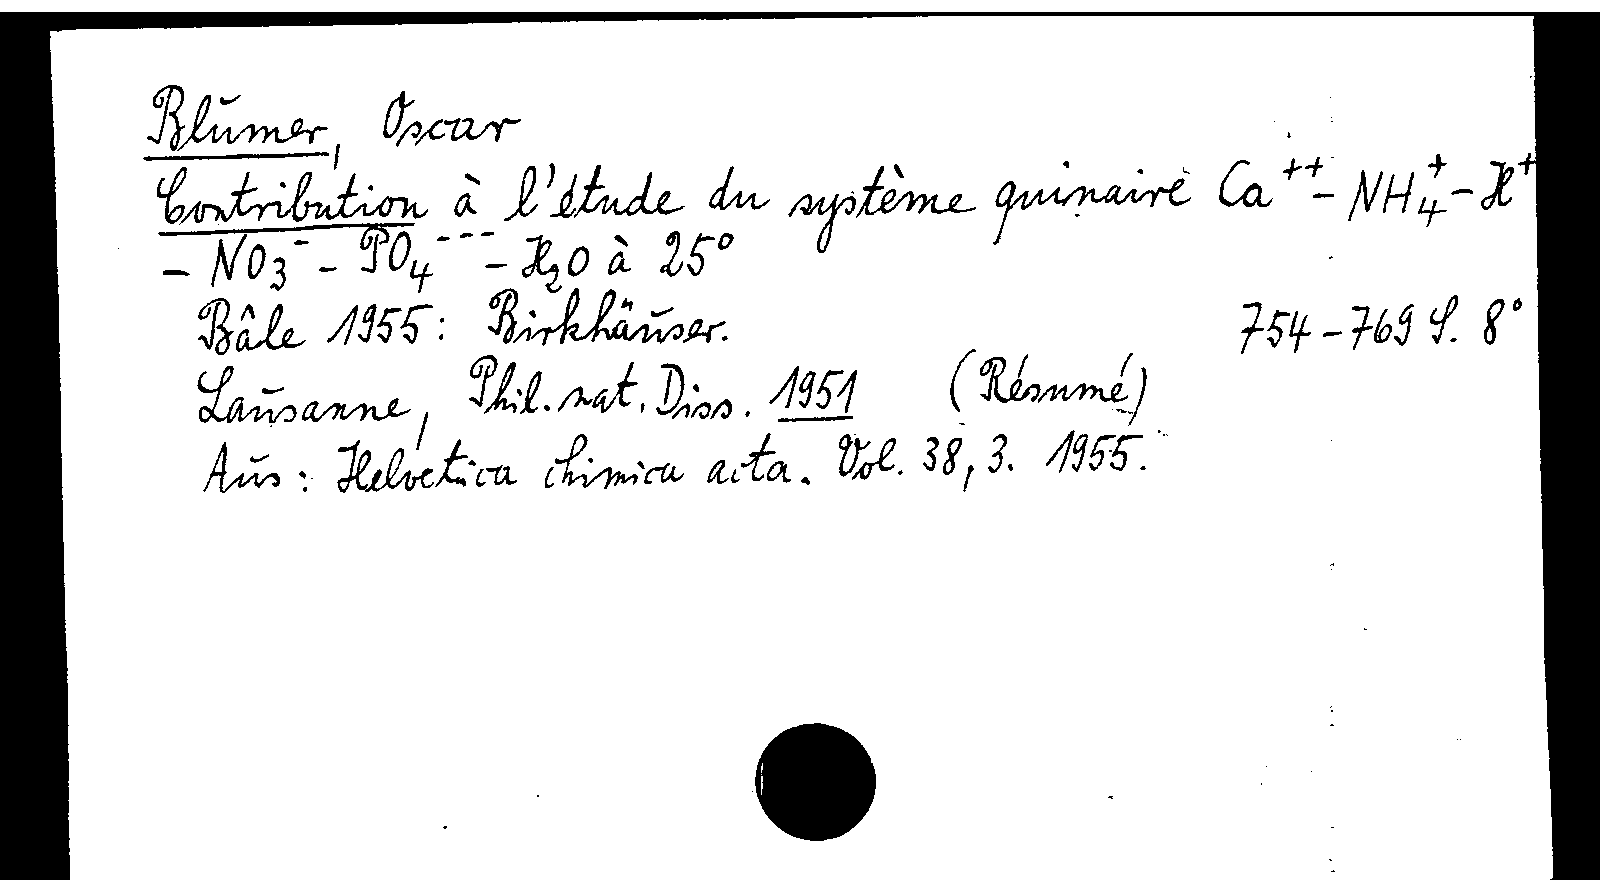 Blumer, Oscar
Contribution à l'étude du système quinaire Ca⁺⁺ – NH₄⁺ – H⁺
– NO₃⁻ – PO₄⁻⁻⁻ – H₂O à 25°
Bâle 1955: Birkhäuser. 754–769 S. 8°
Lausanne, Phil. nat. Diss. 1951 (Résumé)
Aus: Helvetica chimica acta. Vol. 38, 3. 1955.